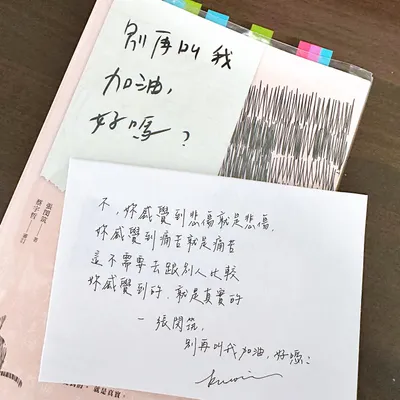 別再叫我
加油,
好嗎?
張閔筑 著
蔡宇哲 審訂
不,你感覺到悲傷就是悲傷,
你感覺到痛苦就是痛苦
這不需要去跟別人比較
你感覺到的,就是真實的
— 張閔筑,
別再叫我加油,好嗎?
就是真實,